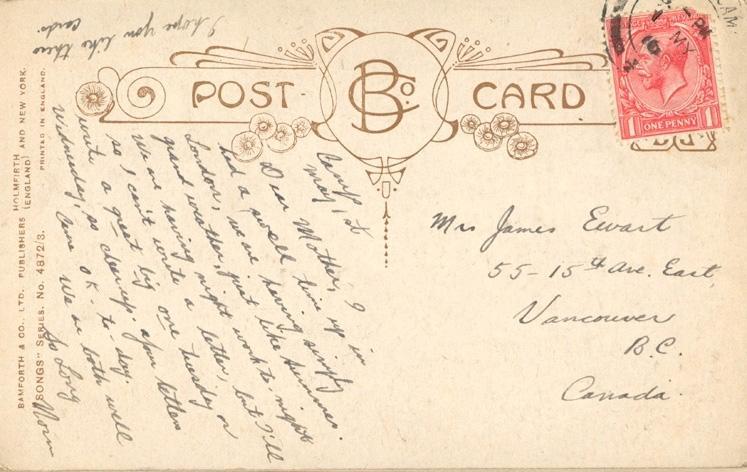 I hope you like these
cards.
POST CARD
BCo.
ONE PENNY
1 1
Camp,
May, 1st
Dear Mother, I
had a swell time up in
London, we are having simply
grand weather, just like summer.
We are having night work to night
so, I can't write a letter, but I'll
write a great big one Tuesday or
Wednesday, so cheer up. your letters
came OK. to-day.
We are both well
So Long
Norm
Mrs James Ewart
55-15th Ave. East,
Vancouver
B.C.
Canada.
BAMFORTH & CO., LTD., PUBLISHERS HOLMFIRTH AND NEW YORK.
(ENGLAND)
"SONGS" SERIES. No. 4872/3. PRINTED IN ENGLAND.